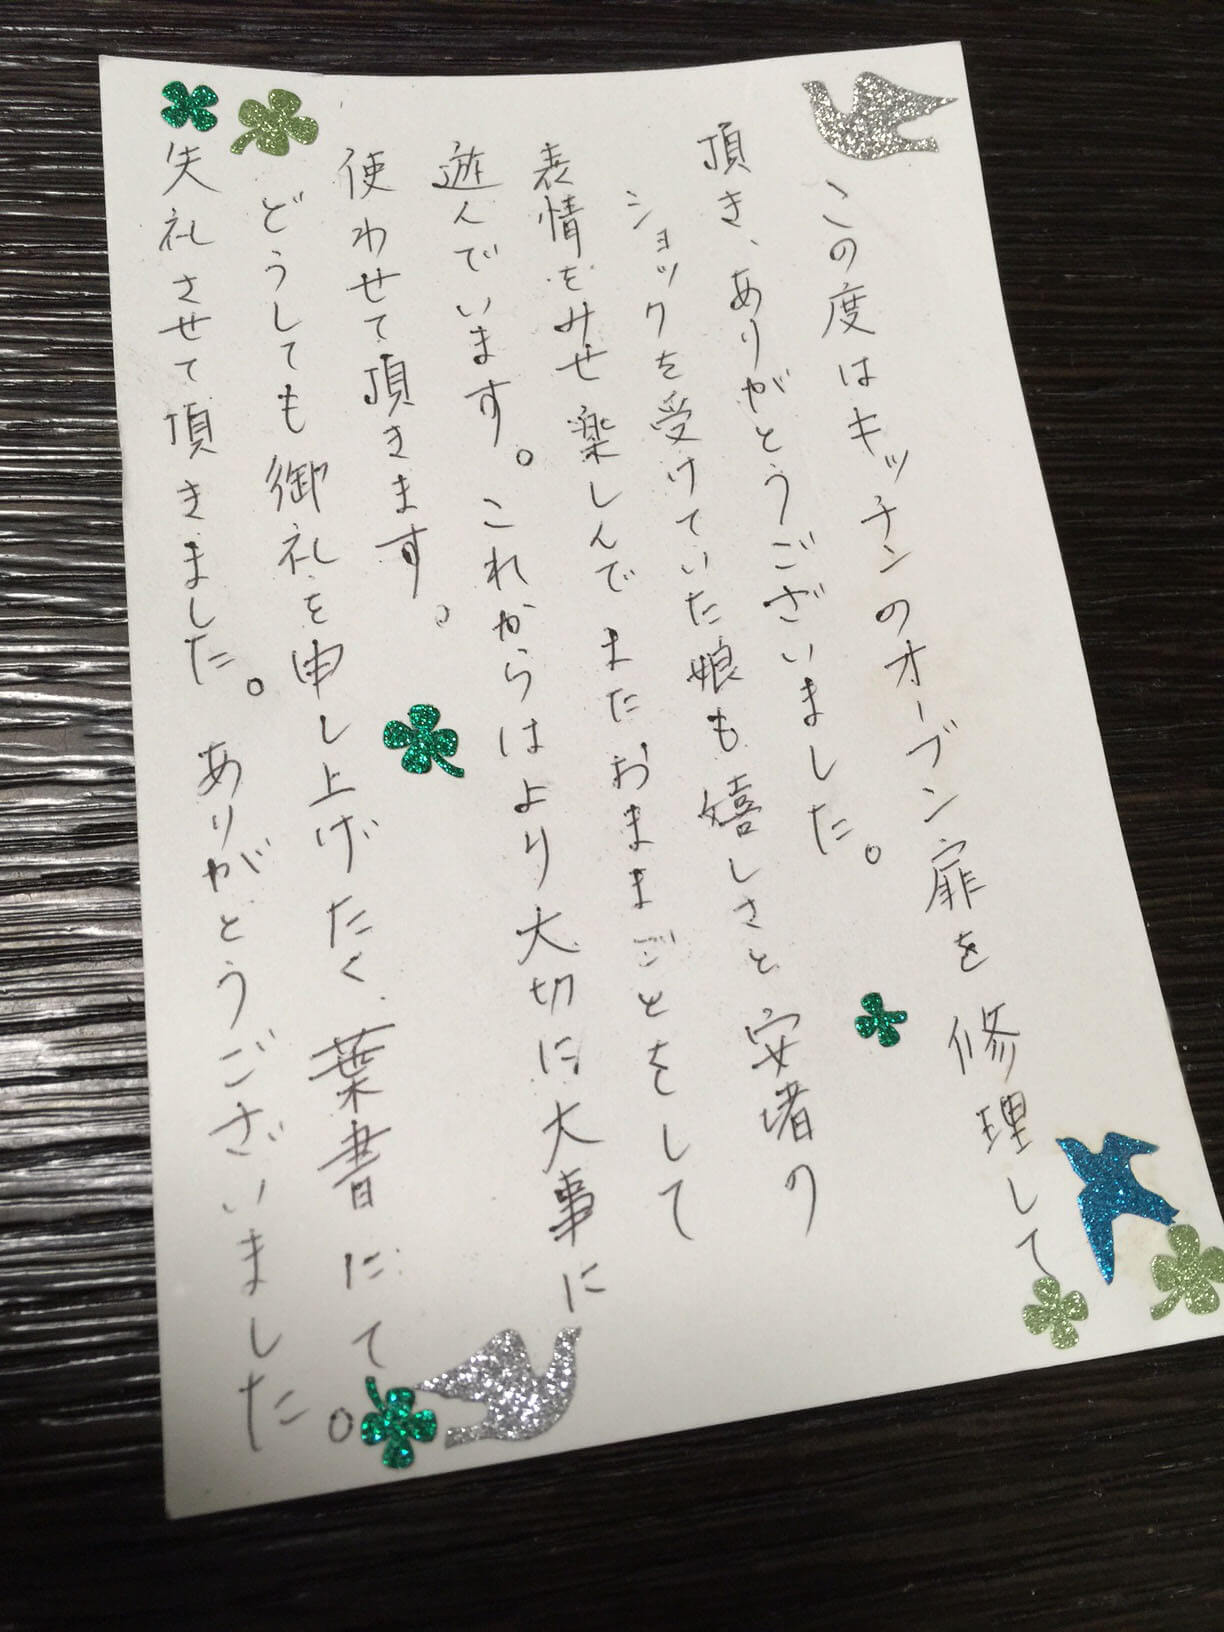 この度はキッチンのオーブン扉を修理して
頂き、ありがとうございました。
ショックを受けていた娘も嬉しさと安堵の
表情をみせ楽しんでまたおままごとをして
遊んでいます。これからはより大切に大事に
使わせて頂きます。
どうしても御礼を申し上げたく、葉書にて
失礼させて頂きました。ありがとうございました。